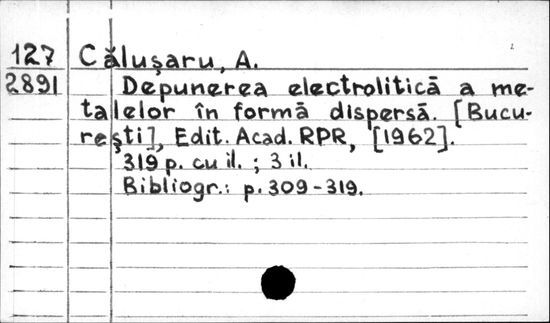 127 Călușaru, A.
2891 Depunerea electrolitică a me-
talelor în formă dispersă. [Bucu-
rești], Edit. Acad. RPR, [1962].
319 p. cu il. ; 3 il.
Bibliogr.: p. 309-319.